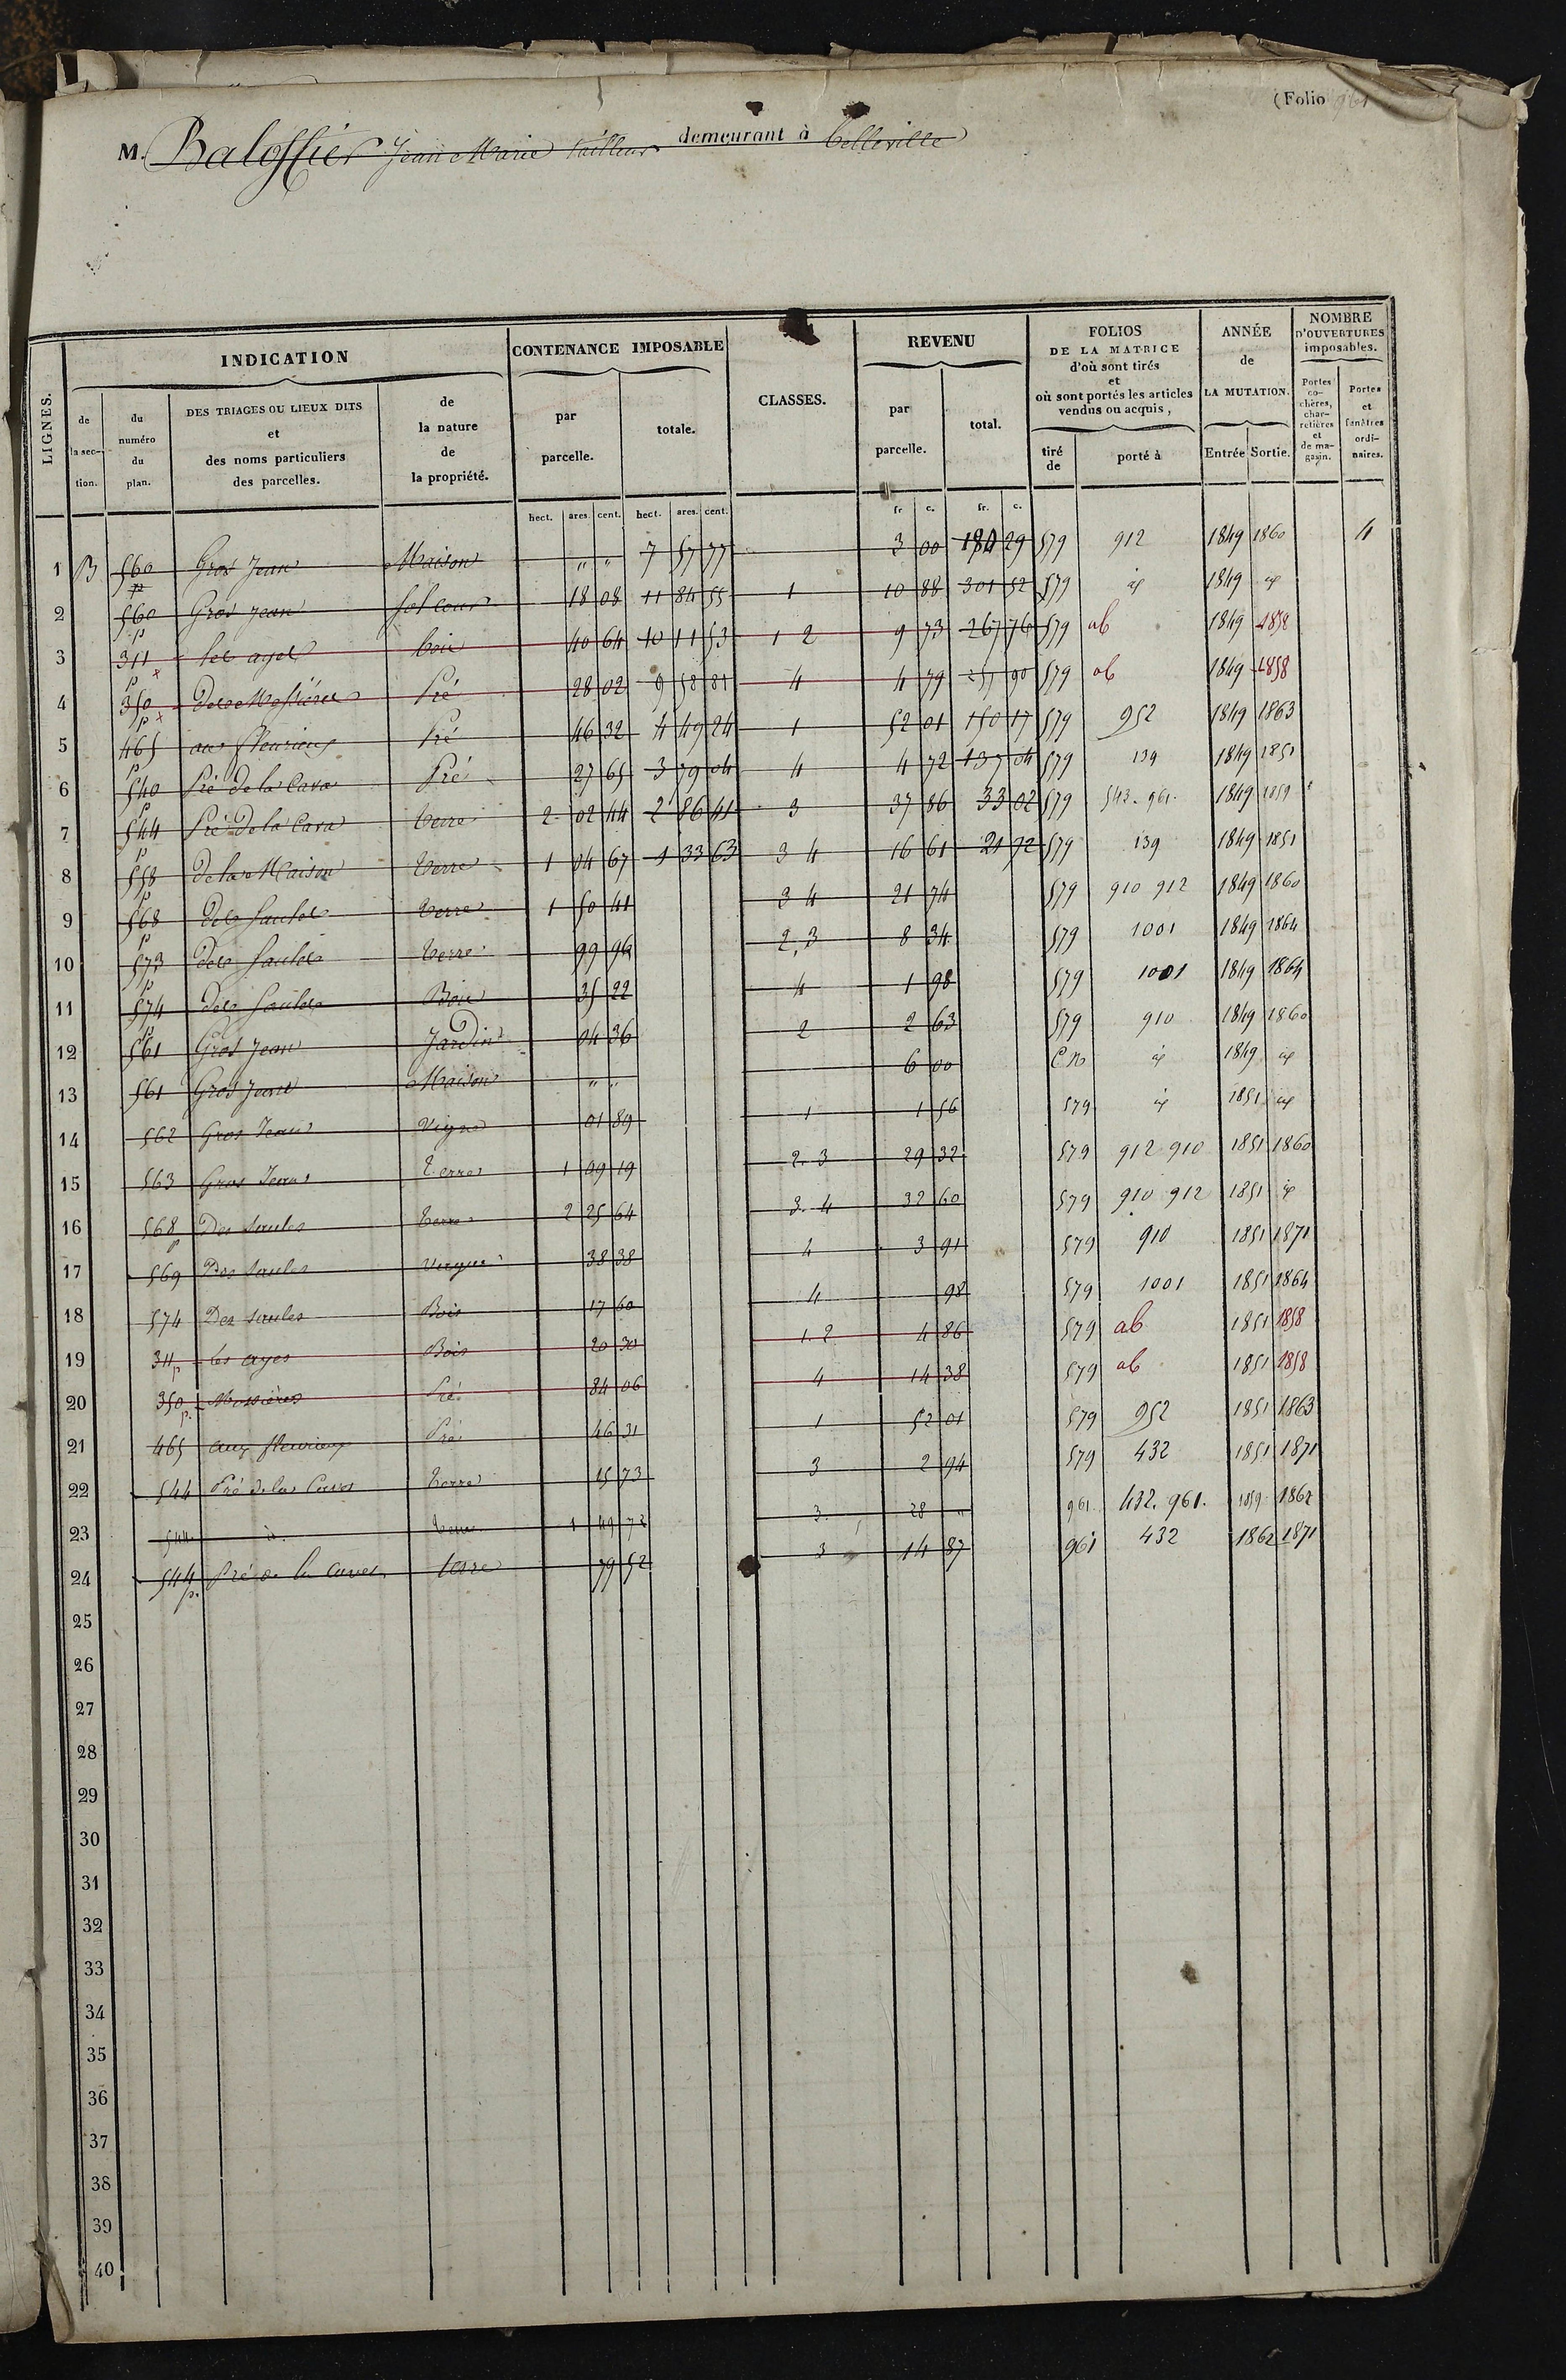 (Folio 961
M. Balossier Jean Marie tailleur demeurant à belleville
LIGNES. INDICATION CONTENANCE IMPOSABLE CLASSES. REVENU FOLIOS DE LA MATRICE d'où sont tirés et où sont portés les articles vendus ou acquis, ANNÉE de LA MUTATION. NOMBRE D'OUVERTURES imposables.
de la section. du numéro du plan. DES TRIAGES OU LIEUX DITS et des noms particuliers des parcelles. de la nature de la propriété. par parcelle. totale. par parcelle. total. tiré de porté à Entrée Sortie. Portes cochères, charretières et de magasin. Portes et fenêtres ordinaires.
hect. ares. cent. hect. ares. cent. fr. c. fr. c.
1 B 560 p Gros Jean Maison " " 7 57 77 3 00 184 29 579 912 1849 1860 4
2 560 p Gros Jean sol cour 18 08 11 84 55 1 10 88 301 52 579 id 1849 id
3 311 p les ayes bois 40 64 10 11 53 1 2 9 73 267 76 579 ab 1849 1858
4 350 p des Mossières Pré 28 02 9 58 81 4 4 79 257 90 579 ab 1849 1858
5 465 p aux fleurieux Pré 46 32 4 49 24 1 52 01 150 17 579 952 1849 1863
6 540 p Pré de la Cava Pré 27 65 3 79 04 4 4 72 137 04 579 139 1849 1851
7 544 p Pré de la Cava terre 2 02 44 2 86 41 3 37 86 33 02 579 543. 961. 1849 1859
8 558 p de la Maison terre 1 04 67 1 33 63 3 4 16 61 21 72 579 139 1849 1851
9 568 p des Saules terre 1 50 41 3 4 21 74 579 910 912 1849 1860
10 573 p des Saules terre 99 96 2, 3 8 34 579 1001 1849 1864
11 574 p des Saules Bois 35 22 4 1 98 579 1001 1849 1864
12 561 Gros Jean Jardin 04 36 2 2 63 579 910 1849 1860
13 561 Gros Jean Maison " " 6 00 C.n id 1849 id
14 562 Gros Jean Vigne 01 89 1 1 56 579 id 1851 id
15 563 Gros Jean Terre 1 09 19 2. 3 29 32 579 912 910 1851 1860
16 568 p Des Saules terre 2 25 64 3. 4 32 60 579 910 912 1851 id
17 569 Des Saules 38 38 4 3 91 579 910 1851 1871
18 574 Des saules Bois 17 60 4 98 579 1001 1851 1864
19 311 p Les ayes Bois 20 30 1. 2 4 86 579 ab 1851 1858
20 350 p. Mossières Pré 84 06 4 14 38 579 ab 1851 1858
21 465 aux fleurieux Pré 46 31 1 52 01 579 952 1851 1863
22 544 Pré de la Cava terre 15 73 3 2 94 579 432 1851 1871
23 544 id. terre 1 49 72 3. 28 " 961 432. 961. 1859 1862
24 544 p. Pré de la Cava terre 79 52 3 14 87 961 432 1862 1871
25
26
27
28
29
30
31
32
33
34
35
36
37
38
39
40